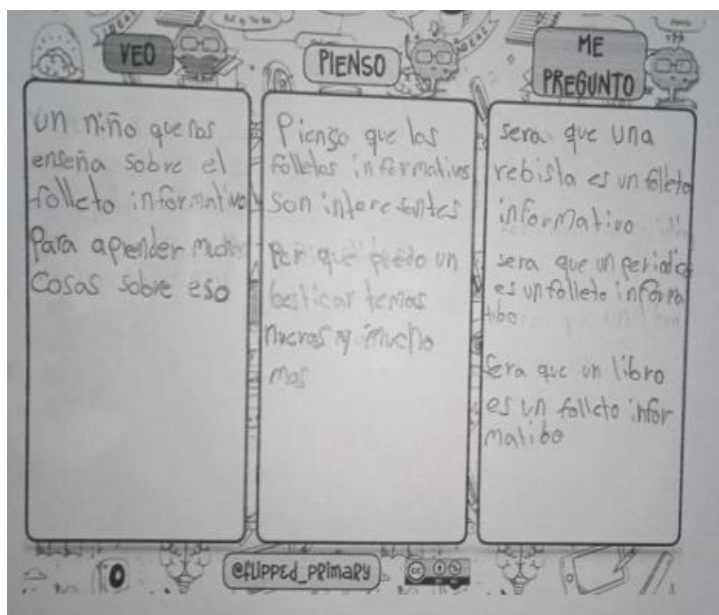 VEO
un niño que nos
enseña sobre el
folleto informativo
Para aprender muchas
Cosas sobre eso
PIENSO
Pienso que los
folletos informativos
son interesantes
Por que puedo un
besticar temas
nuevos y mucho
mas
ME
PREGUNTO
sera que una
rebista es un folleto
informativo
sera que un periodico
es un folleto informa
tibo
sera que un libro
es un folleto infor
matibo
@FLIPPEd_PRIMARY